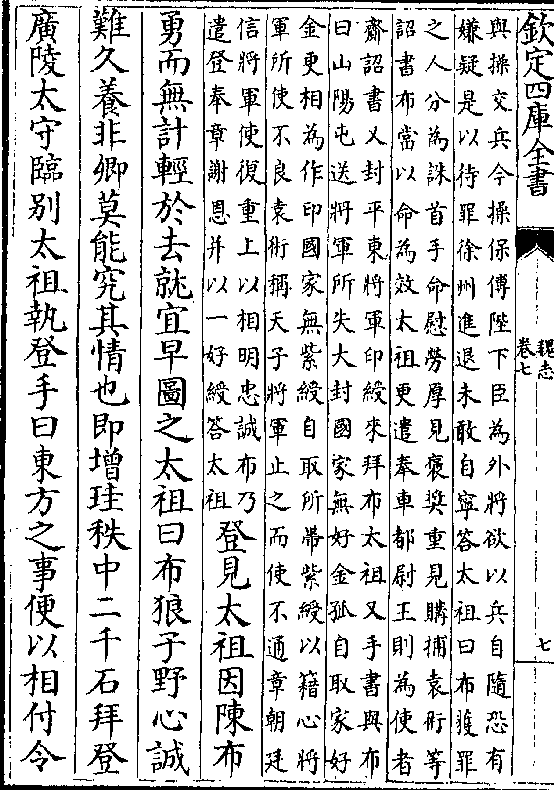 欽定四庫全書
魏志
卷七
七
與操交兵今操保傅陛下臣為外將欲以兵自隨恐有
嫌疑是以待罪徐州進退未敢自寧答太祖曰布獲罪
之人分為誅首手命慰勞厚見褒奬重見購捕袁術等
詔書布當以命為效太祖更遣奉車都尉王則為使者
齎詔書又封平東將軍印綬來拜布太祖又手書與布
曰山陽屯送將軍所失大封國家無好金孤自取家好
金更相為作印國家無紫綬自取所帶紫綬以籍心將
軍所使不良袁術稱天子將軍止之而使不通章朝廷
信將軍使復重上以相明忠誠布乃
遣登奉章謝恩并以一好綬答太祖
登見太祖因陳布
勇而無計輕於去就宜早圖之太祖曰布狼子野心誠
難久養非卿莫能究其情也即增珪秩中二千石拜登
廣陵太守臨别太祖執登手曰東方之事便以相付令